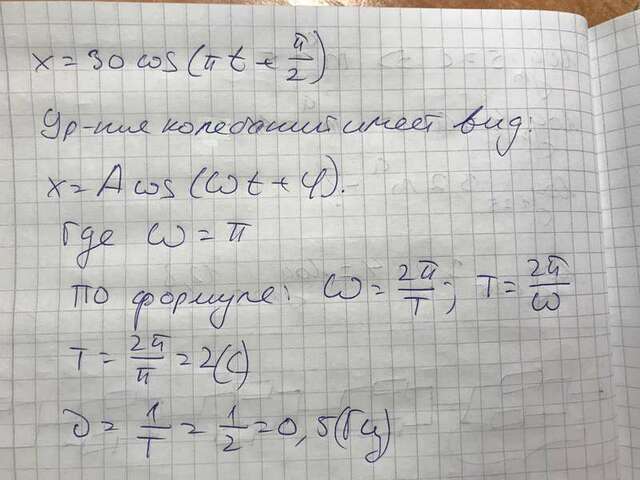 x = 30 cos(πt + π/2)
Ур-ние колебаний имеет вид:
x = A cos(ωt + φ).
Где ω = π
По формуле: ω = 2π/T; T = 2π/ω
T = 2π/π = 2(с)
ν = 1/T = 1/2 = 0,5(Гц)